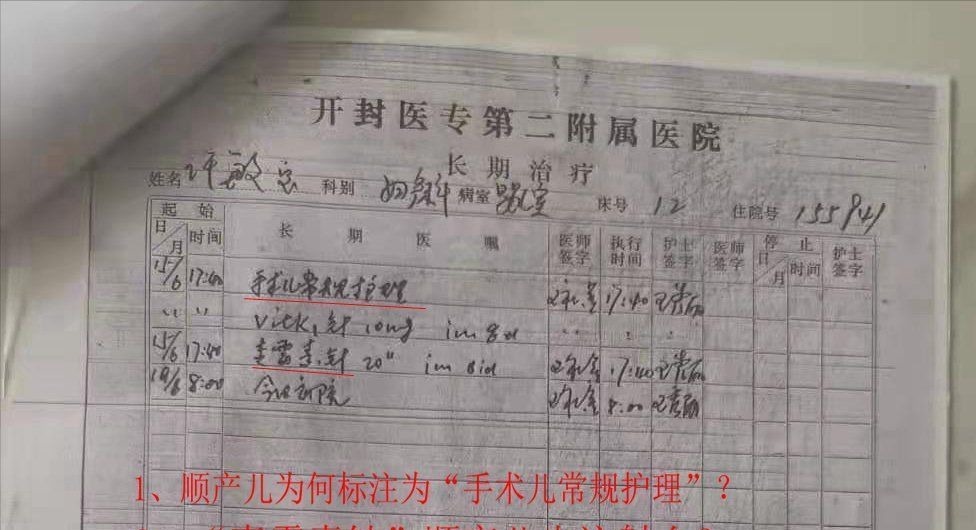 开封医专第二附属医院
长期治疗
姓名 许敏 科别 妇科 病室 床号 12 住院号 155941
起始 长期医嘱 医师签字 执行时间 护士签字 医师签字 停止 护士签字
日/月 时间 日/月 时间
15/6 17:40 手术儿常规护理 17:40
〃 〃 vitk₁针 10mg im qd 〃
15/6 17:40 青霉素针 20″ im bid 17:40
8:00 今日出院 8:00
1、顺产儿为何标注为“手术儿常规护理”?